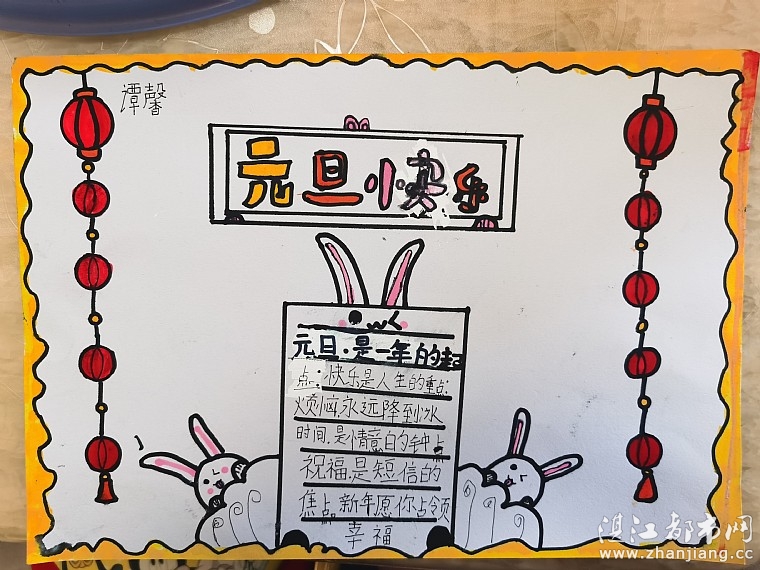 谭馨
元旦快乐
元旦.是一年的起
点:快乐是人生的重点.
烦恼.永远降到冰
时间.是情意的钟点
祝福.是短信的
焦点.新年愿你占领
幸福
湛江都市网
www.zhanjiang.cc